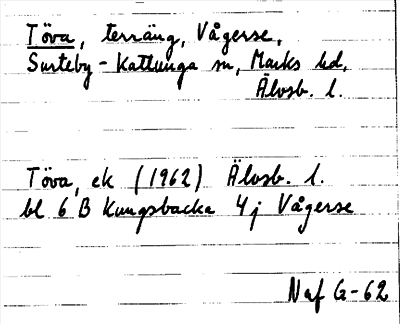 Töva, terräng, Vågerse,
Surteby-Kattunga sn, Marks hd,
Älvsb. l.
Töva, ek (1962) Älvsb. l.
bl 6 B Kungsbacka 4j Vågerse
Naf G-62